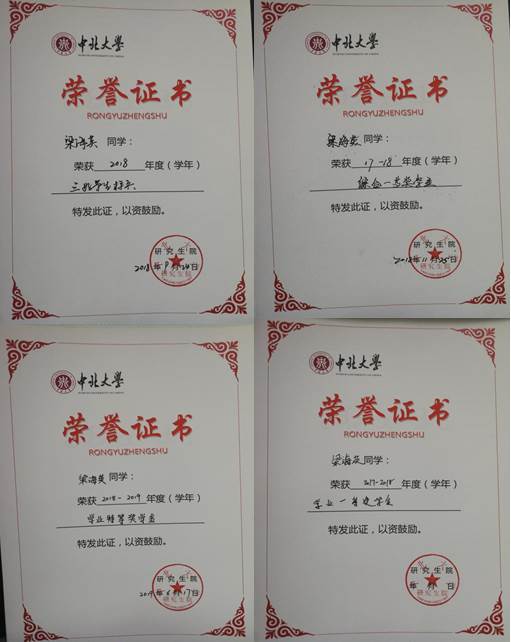 中北大学
荣誉证书
RONGYUZHENGSHU
梁海英 同学：
荣获 2018 年度（学年）
三好学生标兵
特发此证，以资鼓励。
研究生院
2018年9月24日
研究生院
中北大学
荣誉证书
RONGYUZHENGSHU
梁海英 同学：
荣获 17-18 年度（学年）
综合一等奖学金
特发此证，以资鼓励。
研究生院
2018年11月25日
研究生院
中北大学
荣誉证书
RONGYUZHENGSHU
梁海英同学：
荣获2018-2019年度（学年）
学业特等奖学金
特发此证，以资鼓励。
研究生院
2019年6月17日
研究生院
中北大学
荣誉证书
RONGYUZHENGSHU
梁海英同学：
荣获2017-2018年度（学年）
学业一等奖学金
特发此证，以资鼓励。
研究生院
年 月 日
研究生院